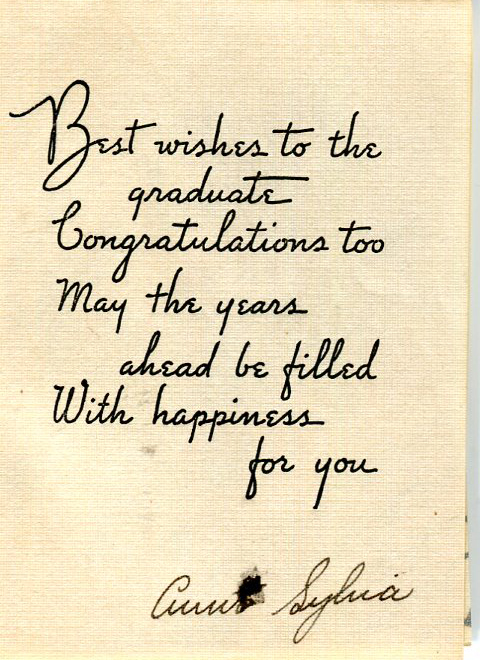 Best wishes to the
graduate
Congratulations too
May the years
ahead be filled
With happiness
for you
Aunt Sylvia